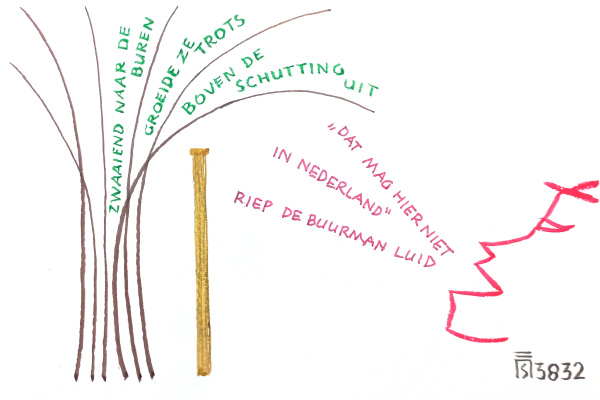 ZWAAIEND NAAR DE
BUREN
GROEIDE ZE
TROTS
BOVEN DE
SCHUTTING UIT
„DAT MAG HIER NIET
IN NEDERLAND"
RIEP DE BUURMAN LUID
3832